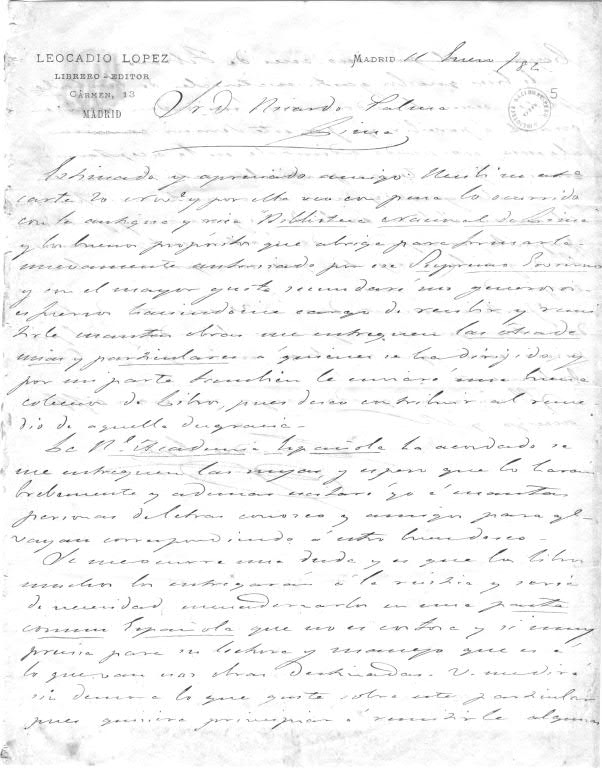 LEOCADIO LOPEZ
LIBRERO-EDITOR
CÁRMEN, 13
MADRID
MADRID 11 Enero /82.
5
Sr. D. Ricardo Palma
Lima
Estimado y apreciado amigo: Recibí su
carta 20 Novº y por ella veo con pena lo ocurrido
con la antigua y rica Biblioteca Nacional de Lima
y los buenos propósitos que abriga para formarla
nuevamente autorizado por su Supremo Gobierno
y con el mayor gusto secundaré sus generosos
esfuerzos haciéndome cargo de recibir y remi
tirle cuantas obras me entreguen las Acade
mias y particulares á quienes se ha dirigido, y
por mi parte tambien le enviaré una buena
coleccion de Libros, pues deseo contribuir al reme
dio de aquella desgracia.
La Rl. Academia Española ha acordado se
me entreguen las suyas, y espero que lo haran
brebemente y ademas escitaré yo á cuantas
personas de letras conozco y amigos para qe.
vayan correspondiendo á este buen deseo.
Se me ocurre una duda y es que los libros
muchos los entregarán á la rústica y seria
de necesidad encuadernarlos en una pasta
comun Española que no es costosa y si muy
precisa para su lectura y manejo que es á
lo que van esas obras destinadas. V. me dirá
sin demora lo que guste sobre este particular
pues quisiera principiar á remitirle algunas